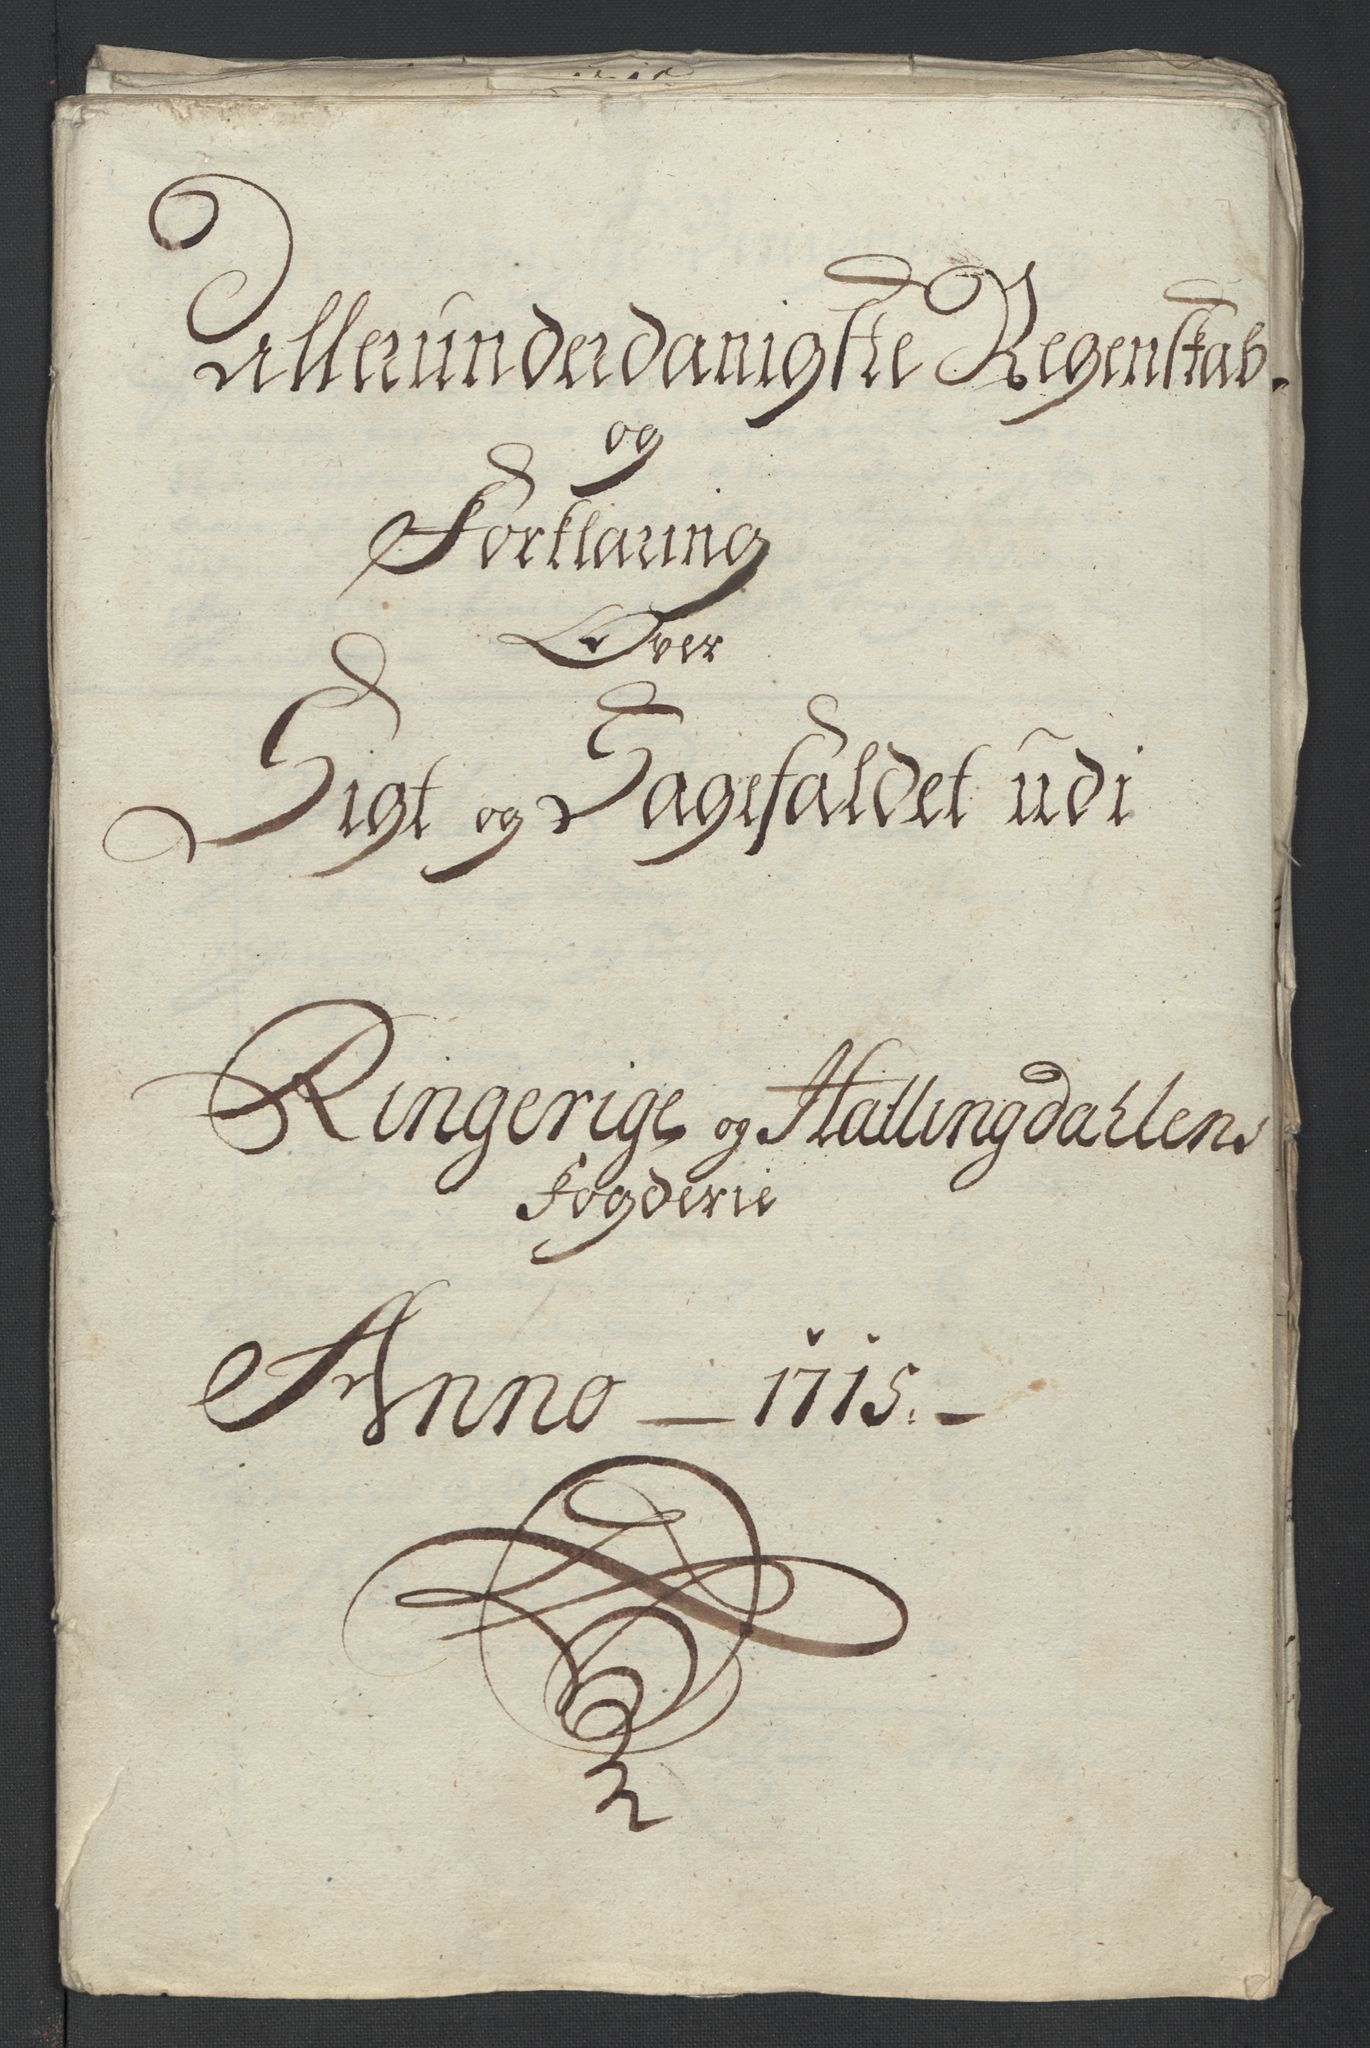 Alleründerdanigste Regenskab.
og
Forklaring
Over
Sigt og Sagefaldet üdi
Ringerige og Hallingdahlens
Fogderie
Anno — 1715. —
2